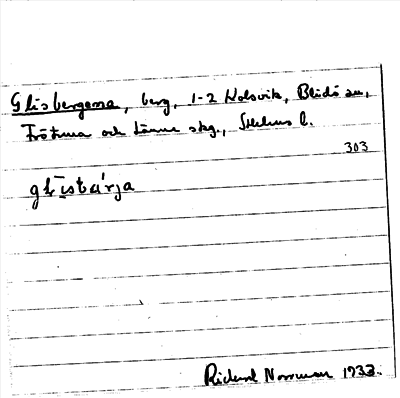 Glisbergena, berg, 1-2 Kolsvik, Blidö sn,
Frötuna och Länna skg., Sthlms l.
303
Richard Norrman 1933.